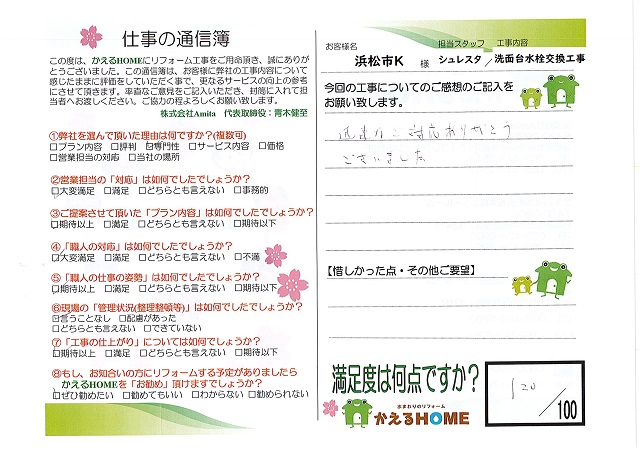 仕事の通信簿
この度は、かえるHOMEにリフォーム工事をご用命頂き、誠にありが
とうございました。この通信簿は、お客様に弊社の工事内容について
感じたままに評価をしていただく事で、更なるサービスの向上の参考
にさせて頂きます。率直なご意見をご記入いただき、封筒に入れて担
当者へお渡しください。ご協力の程よろしくお願い致します。
株式会社Amita 代表取締役：青木健至
①弊社を選んで頂いた理由は何ですか?(複数可)
□プラン内容 □評判 □専門性 □サービス内容 □価格
□営業担当の対応 □当社の場所
②営業担当の「対応」は如何でしたでしょうか？
□大変満足 □満足 □どちらとも言えない □事務的
③ご提案させて頂いた「プラン内容」は如何でしたでしょうか？
□期待以上 □満足 □どちらとも言えない □期待以下
④「職人の対応」は如何でしたでしょうか？
□大変満足 □満足 □どちらとも言えない □不満
⑤「職人の仕事の姿勢」は如何でしたでしょうか？
□期待以上 □満足 □どちらとも言えない □期待以下
⑥現場の「管理状況(整理整頓等)」は如何でしたでしょうか？
□言うことなし □配慮があった
□どちらとも言えない □できていない
⑦「工事の仕上がり」については如何でしょうか？
□期待以上 □満足 □どちらとも言えない □期待以下
⑧もし、お知合いの方にリフォームする予定がありましたら
かえるHOMEを「お勧め」頂けますでしょうか？
□ぜひ勧めたい □勧めてもいい □わからない □勧められない
お客様名 担当スタッフ 工事内容
浜松市K 様 シュレスタ／洗面台水栓交換工事
今回の工事についてのご感想のご記入を
お願い致します。
迅速なご対応ありがとう
ございました
【惜しかった点・その他ご要望】
満足度は何点ですか？
120／100
水まわりのリフォーム
かえるHOME